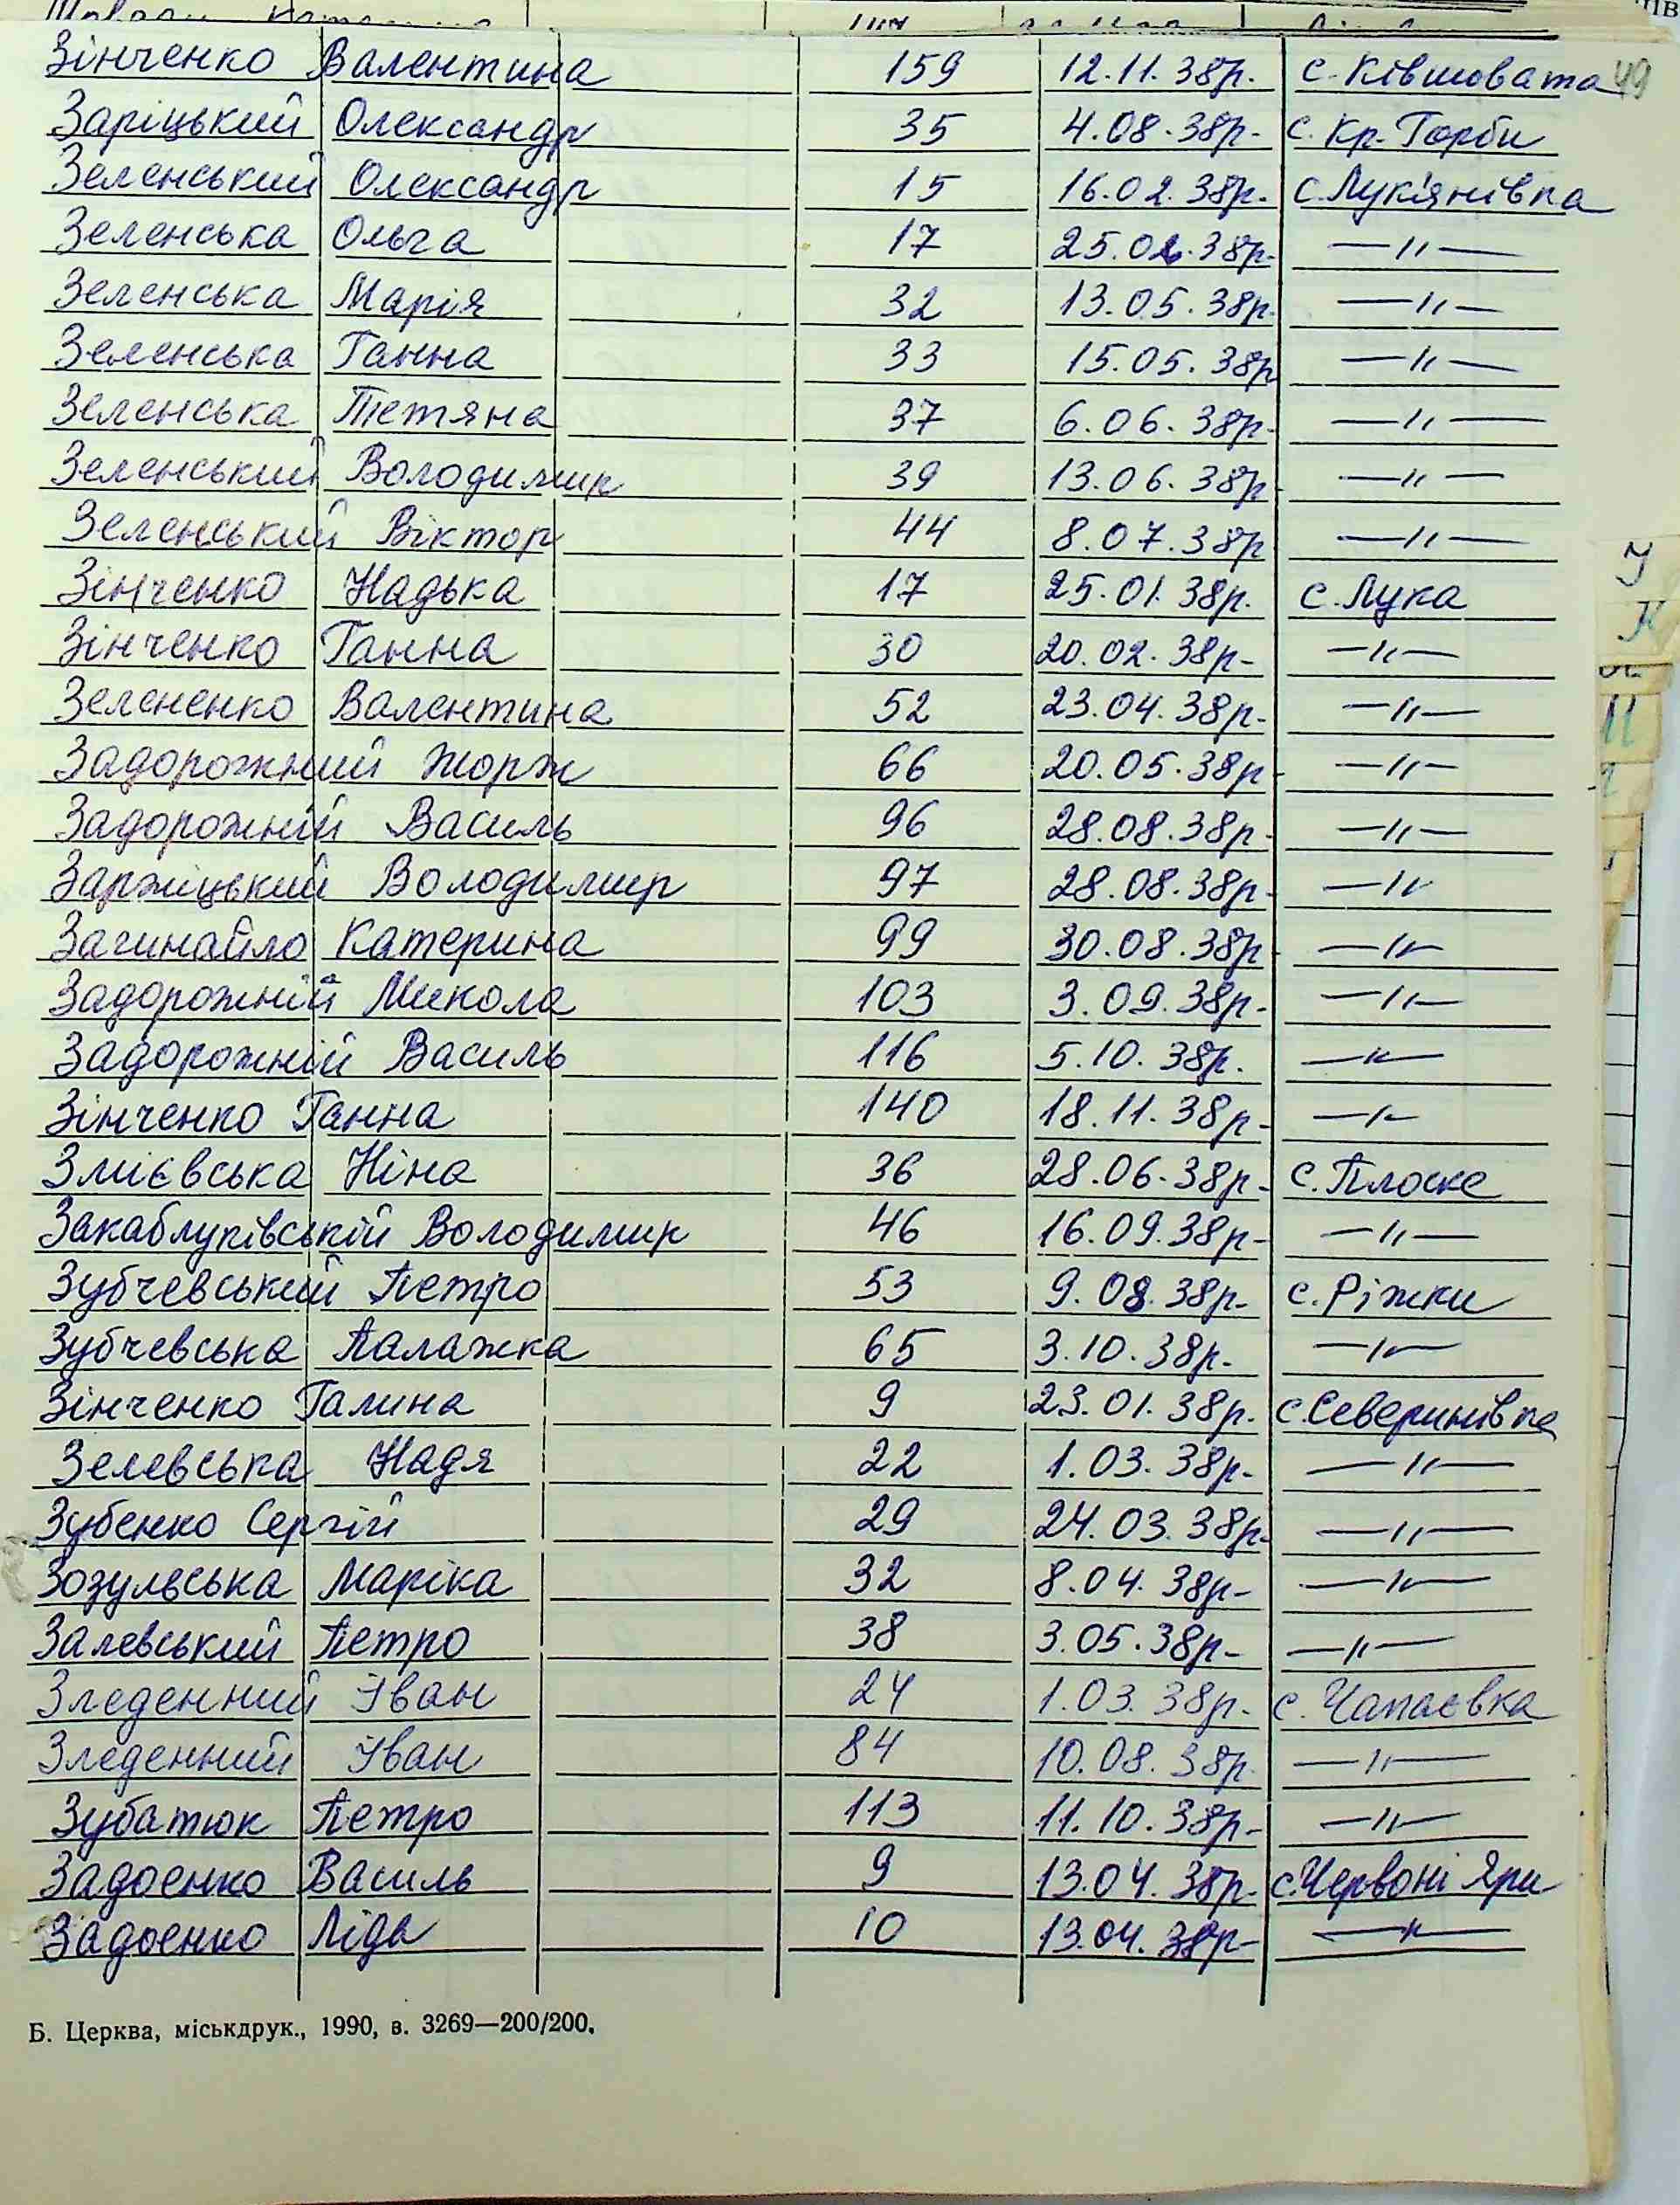 Зінченко Валентина 159 12.11.38р. с. Ківшовата 49
Заріцький Олександр 35 4.08.38р. с. Кр. Горби
Зеленський Олександр 15 16.02.38р. с. Лук'янівка
Зеленська Ольга 17 25.02.38р. —"—
Зеленська Марія 32 13.05.38р. —"—
Зеленська Ганна 33 15.05.38р —"—
Зеленська Тетяна 37 6.06.38р. —"—
Зеленський Володимир 39 13.06.38р. —"—
Зеленський Віктор 44 8.07.38р —"—
Зінченко Надька 17 25.01.38р. с. Лука
Зінченко Ганна 30 20.02.38р. —"—
Зелененко Валентина 52 23.04.38р. —"—
Задорожний Жорж 66 20.05.38р. —"—
Задорожній Василь 96 28.08.38р. —"—
Заржіцький Володимир 97 28.08.38р. —"—
Загинайло Катерина 99 30.08.38р. —"—
Задорожній Микола 103 3.09.38р. —"—
Задорожній Василь 116 5.10.38р. —"—
Зінченко Ганна 140 18.11.38р. —"—
Змієвська Ніна 36 28.06.38р. с. Плоске
Закаблуківській Володимир 46 16.09.38р. —"—
Зубчевський Петро 53 9.08.38р. с. Ріжки
Зубчевська Палажка 65 3.10.38р. —"—
Зінченко Галина 9 23.01.38р. с. Северинівка
Зелевська Надя 22 1.03.38р. —"—
Зубенко Сергій 29 24.03.38р. —"—
Зозульська Маріка 32 8.04.38р. —"—
Залевський Петро 38 3.05.38р. —"—
Зледенний Іван 24 1.03.38р. с. Чапаєвка
Зледенний Іван 84 10.08.38р. —"—
Зубатюк Петро 113 11.10.38р. —"—
Задоєнко Василь 9 13.04.38р. с. Червоні Яри
Задоєнко Ліда 10 13.04.38р. —"—
Б. Церква, міськдрук., 1990, в. 3269—200/200.